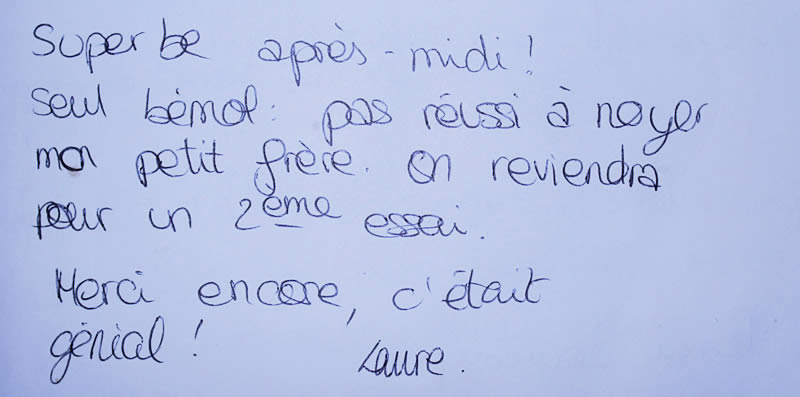 Superbe après-midi !
Seul bémol : pas réussi à noyer
mon petit frère. On reviendra
pour un 2ème essai.
Merci encore, c'était
génial !
Laure.